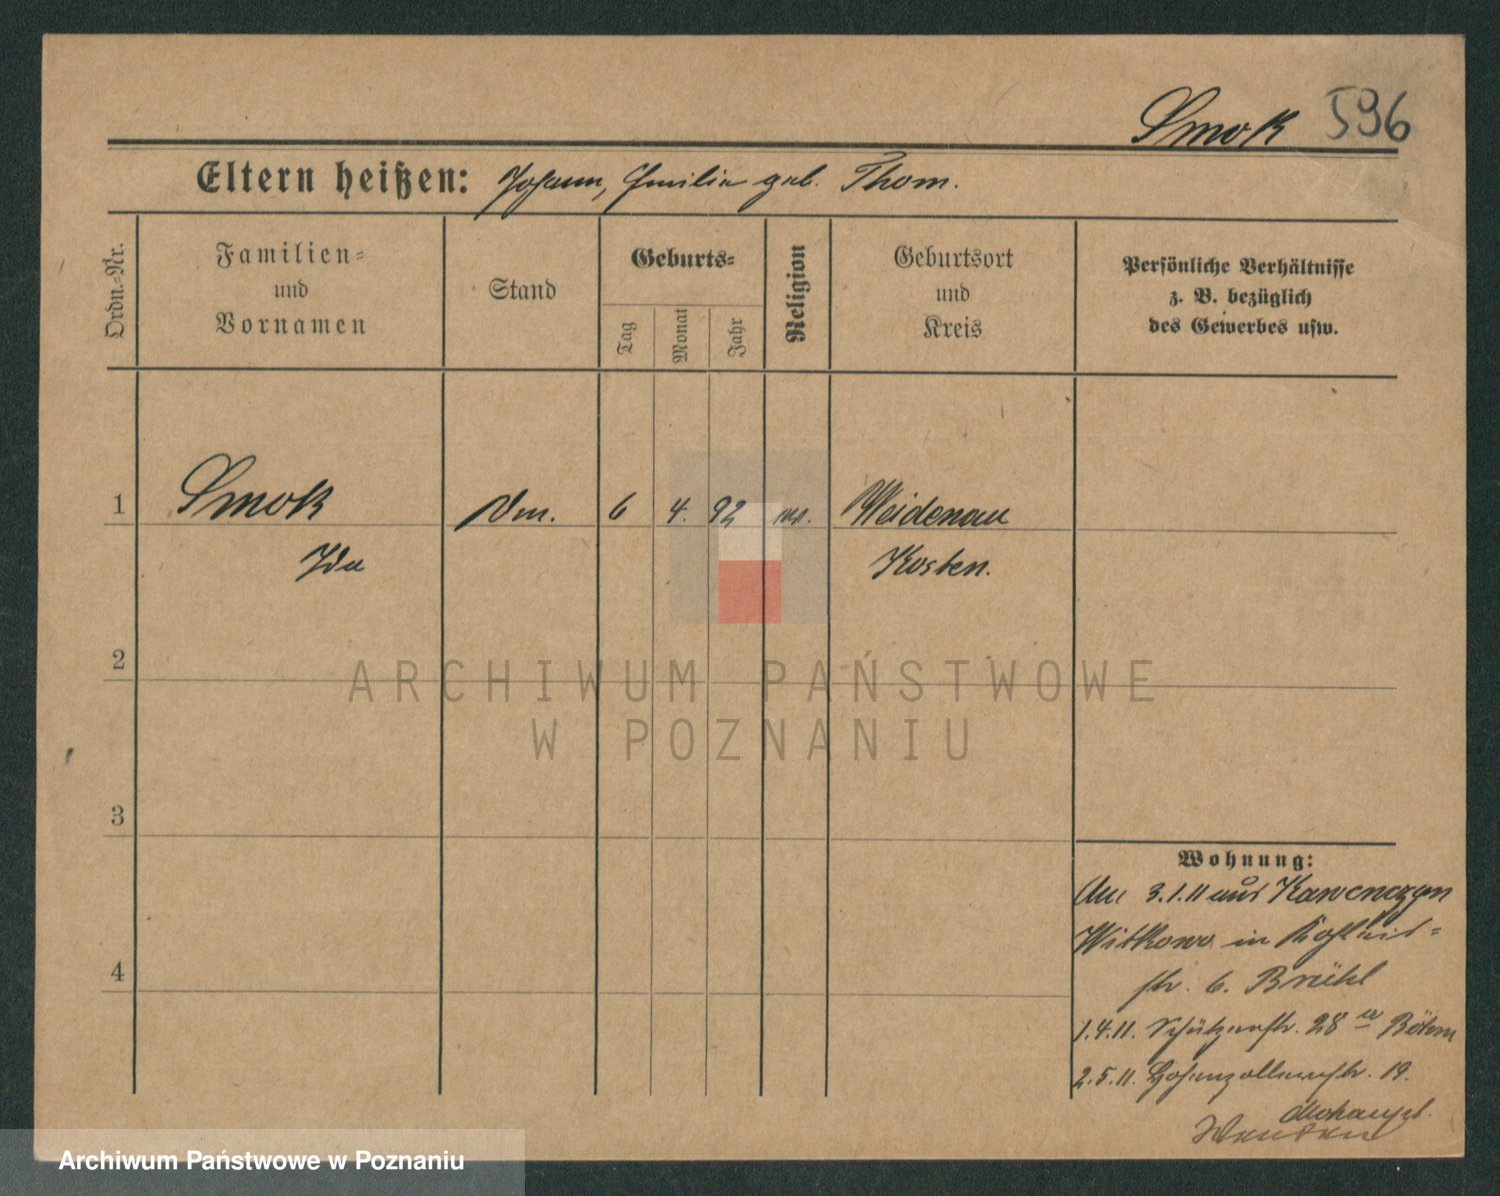 Smok 596
Eltern heißen: Johann, Emilie geb. Thom.
Ordn.-Nr.
Familien-
und
Vornamen
Stand
Geburts-
Tag
Monat
Jahr
Religion
Geburtsort
und
Kreis
Persönliche Verhältnisse
z. B. bezüglich
des Gewerbes usw.
1 Smok 6 4. 92 Weidenau
Ida Kosten.
2
ARCHIWUM PAŃSTWOWE
W POZNANIU
3
4
Wohnung:
Am 3.1.11 aus Kawenczyn
Witkowo in
str. 6. Brühl
1.4.11. Schützenstr. 28 a Böhm
2.5.11. Hohenzollernstr. 19.
Archiwum Państwowe w Poznaniu